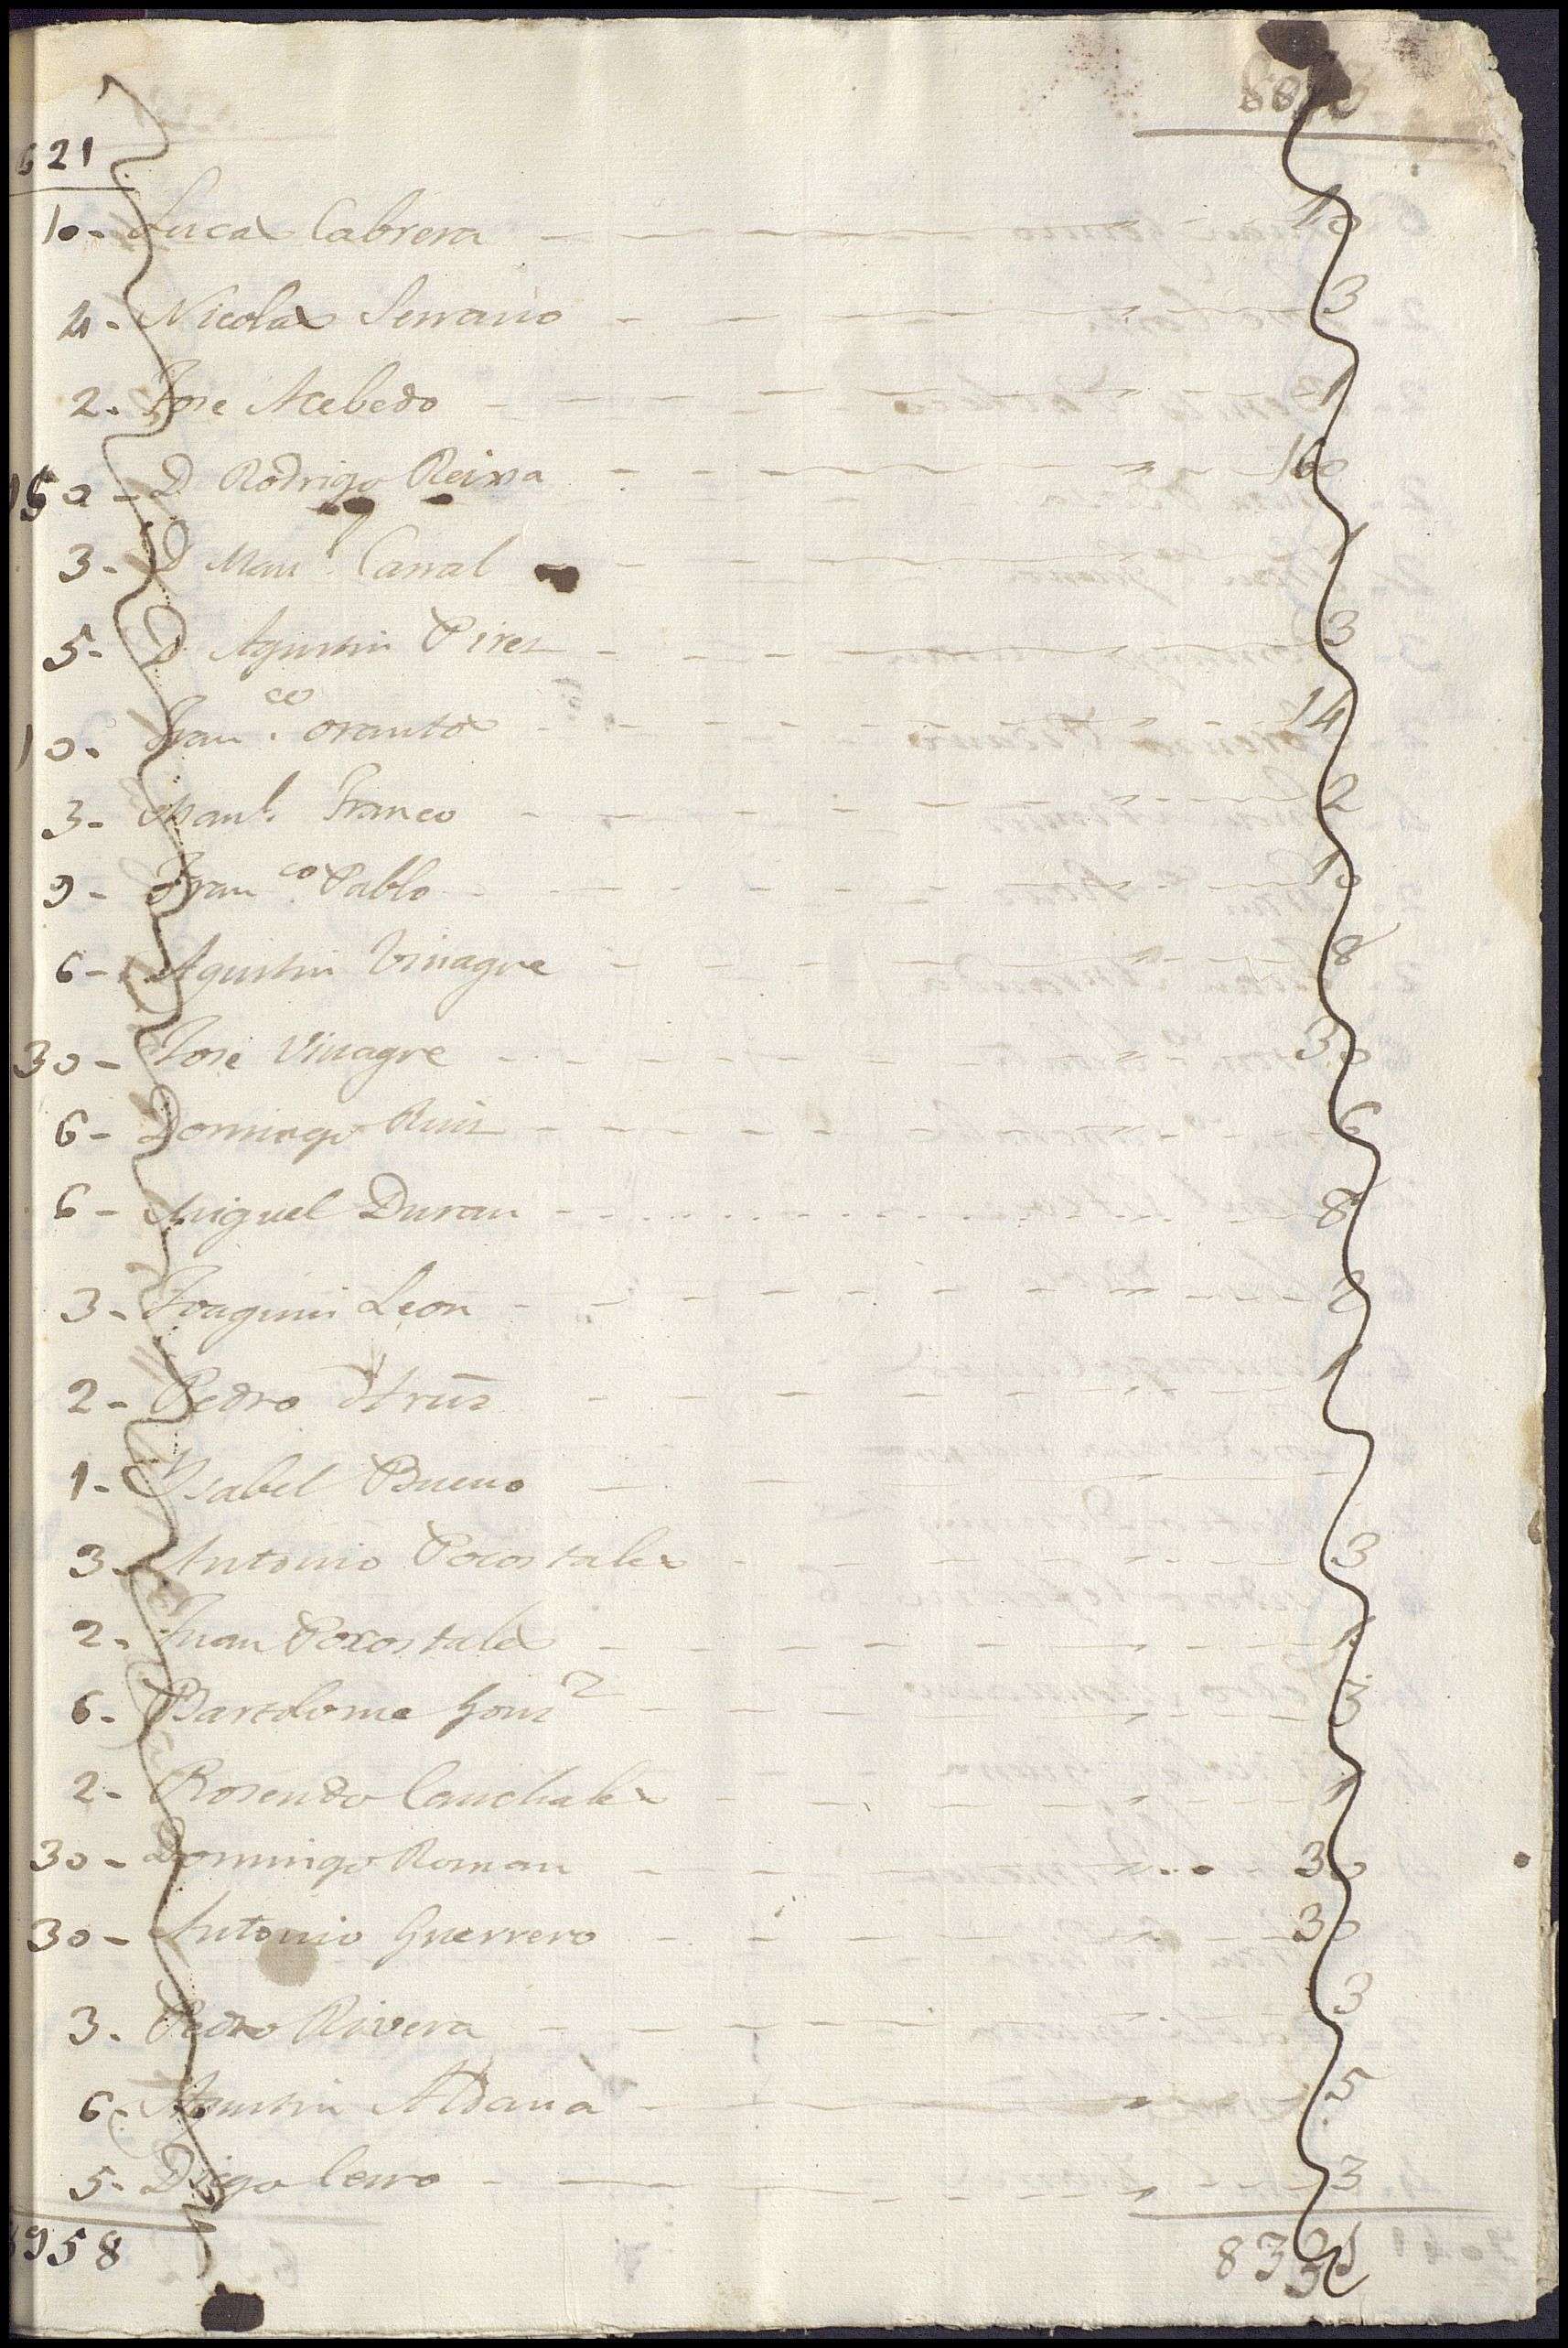 621
10 - Lucas Cabrera - - - 10
4 - Nicolas Serrano - - - 3
2 - Jose Acebedo - - - 1
150 - D Rodrigo Reina - - - 160
3 - D Man.l Carral - - - 1
5 - D Agustin Pirez - - - 3
10 - Fran.co orantos - - - 14
3 - Man.l Franco - - - 2
9 - Fran.co Pablo - - - 10
6 - Agustin Vinagre - - - 8
30 - Jose Vinagre - - - 30
6 - Domingo Ruiz - - - 6
6 - Miguel Duran - - - 8
3 - Joaquin Leon - - - 2
2 - Pedro - - - 1
1 - Ysabel Bueno - - -
3 - Antonio Pocostales - - - 3
2 - Juan Pocostales - - - 1
6 - Bartolome Gonz - - - 3
2 - Rosendo Canchales - - - 1
30 - Domingo Roman - - - 30
30 - Antonio Guerrero - - - 30
3 - Pedro Rivera - - - 3
6 - Agustin Aldana - - - 5
5 - Diego Cerro - - - 3
958